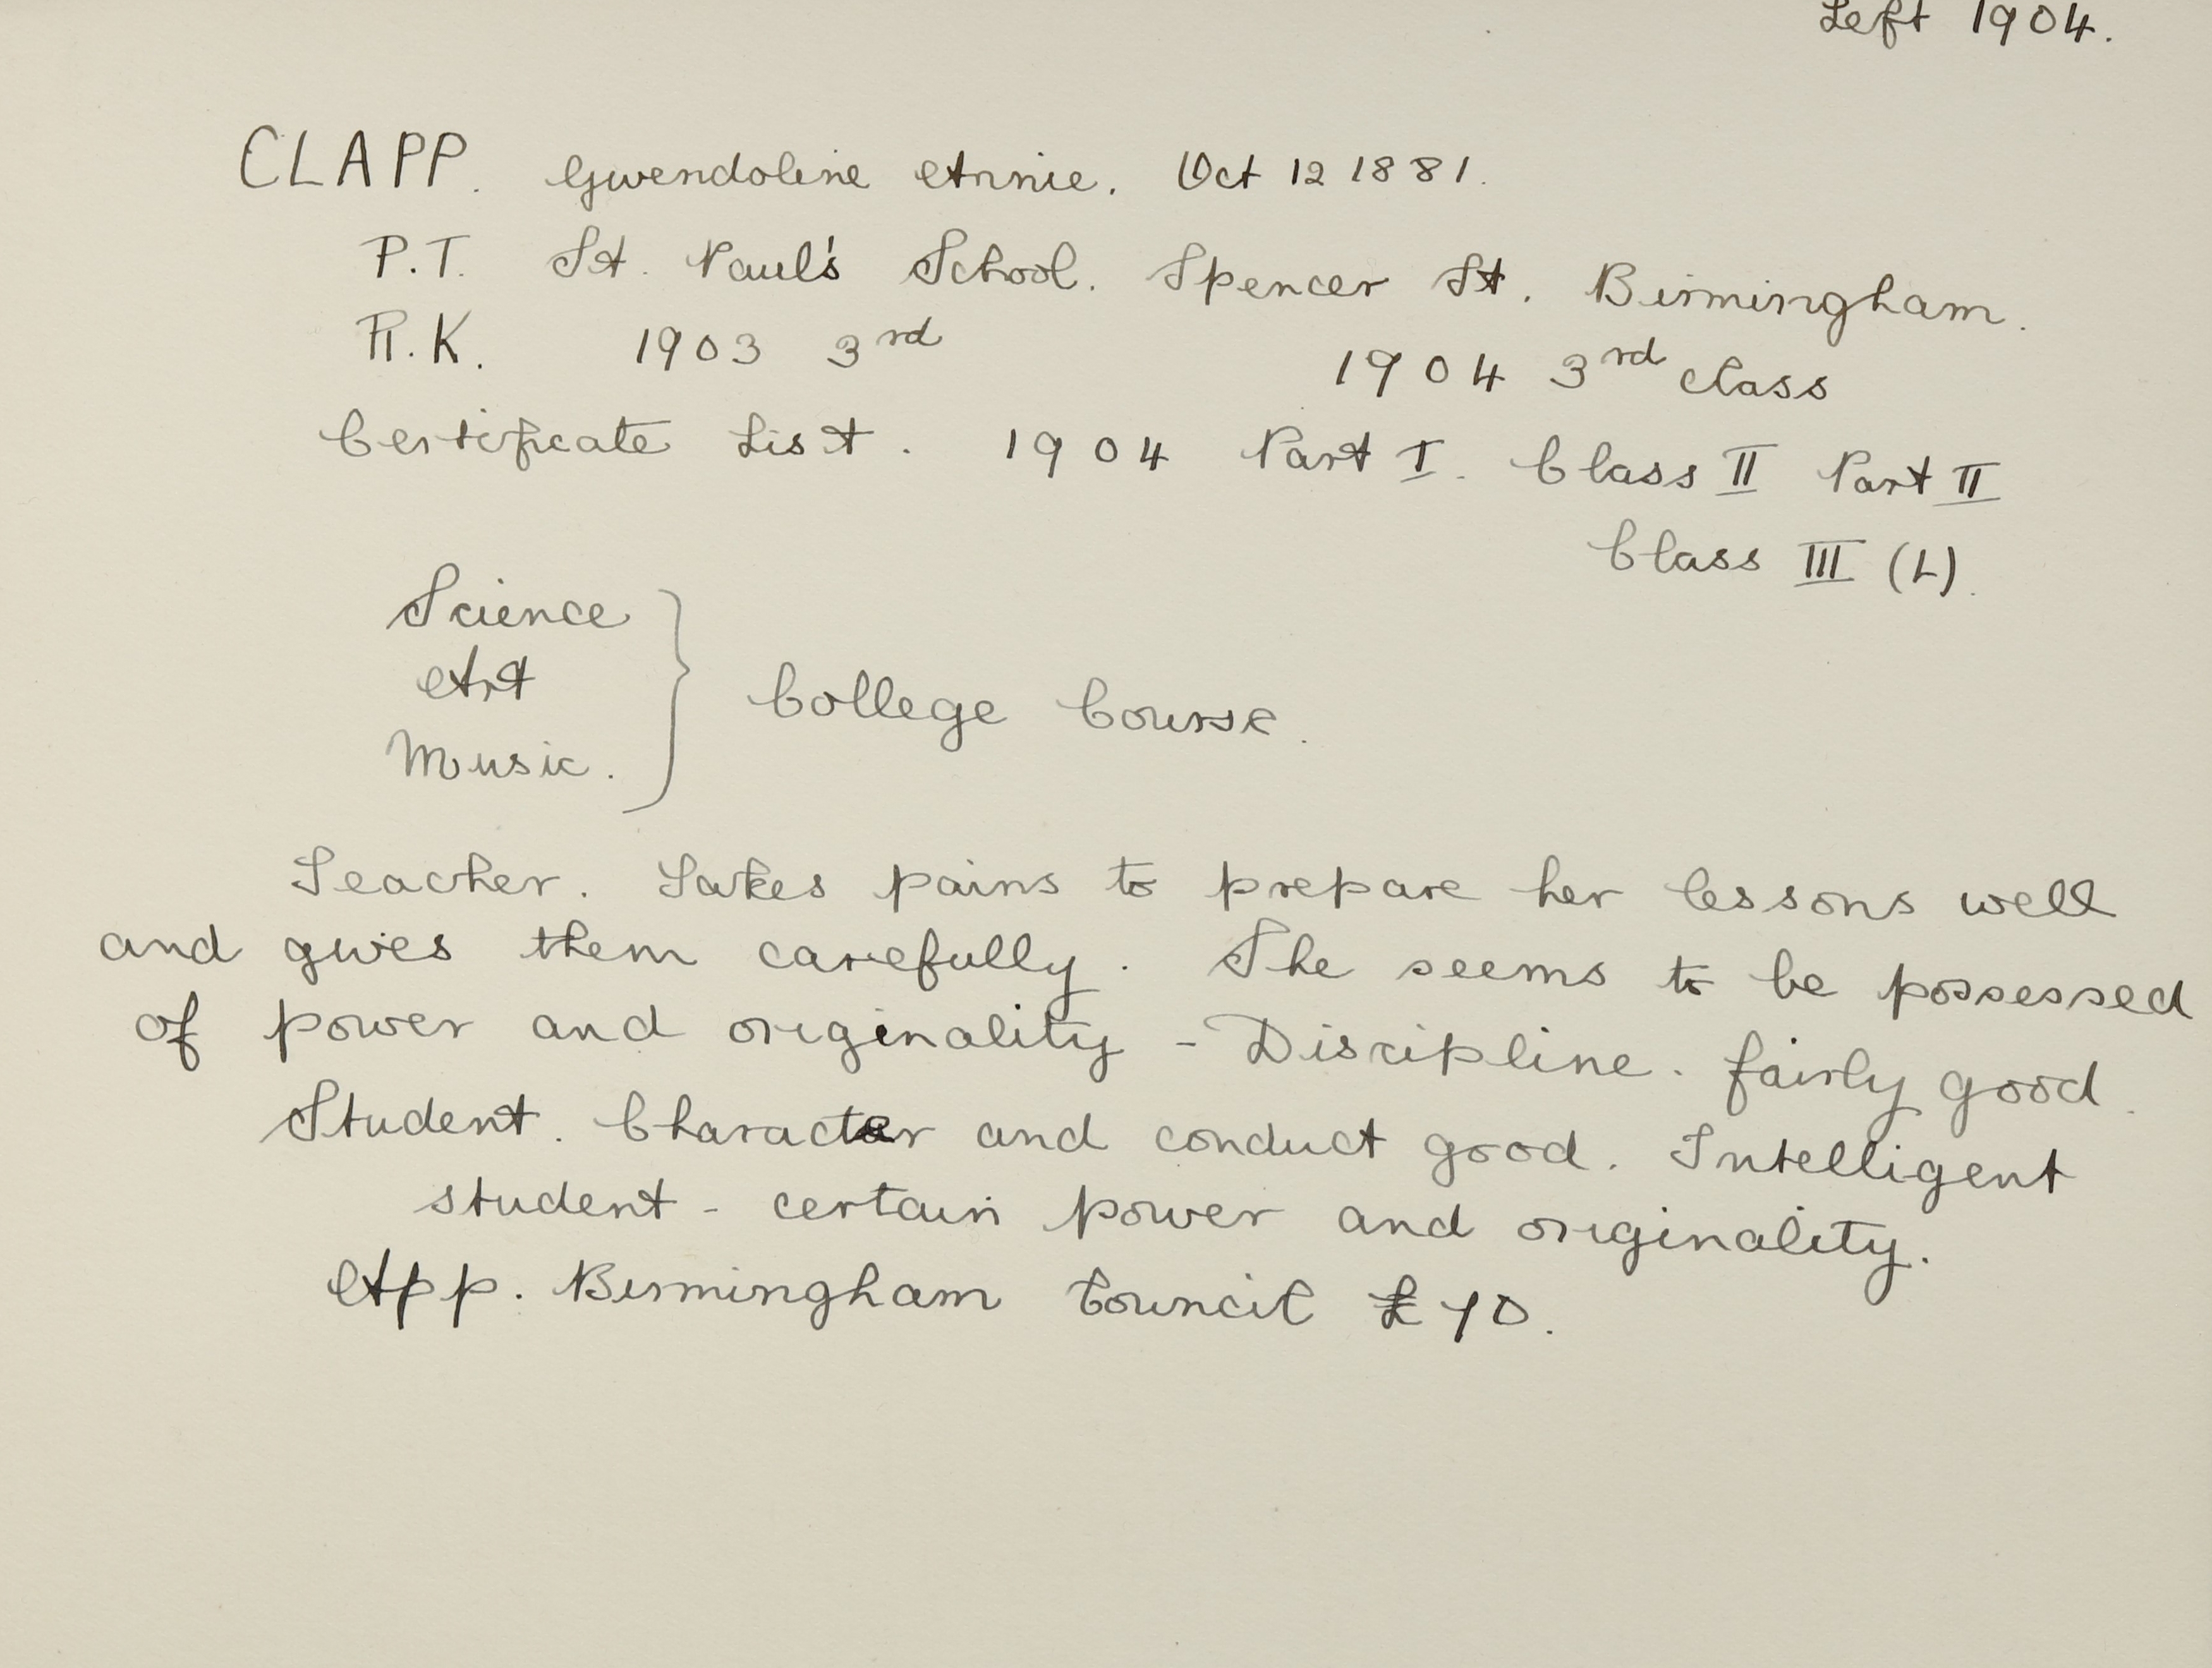 Left 1904.
CLAPP. Gwendoline Annie. Oct 12 1881.
P.T. St. Paul's School. Spencer St. Birmingham.
R.K. 1903 3rd 1904 3rd class
Certificate List. 1904 Part I. Class II Part II
Class III (L).
Science
Art
Music.
} College Course.
Teacher. Takes pains to prepare her lessons well
and gives them carefully. She seems to be possessed
of power and originality - Discipline. fairly good.
Student. Character and conduct good. Intelligent
student - certain power and originality.
App. Birmingham Council £70.